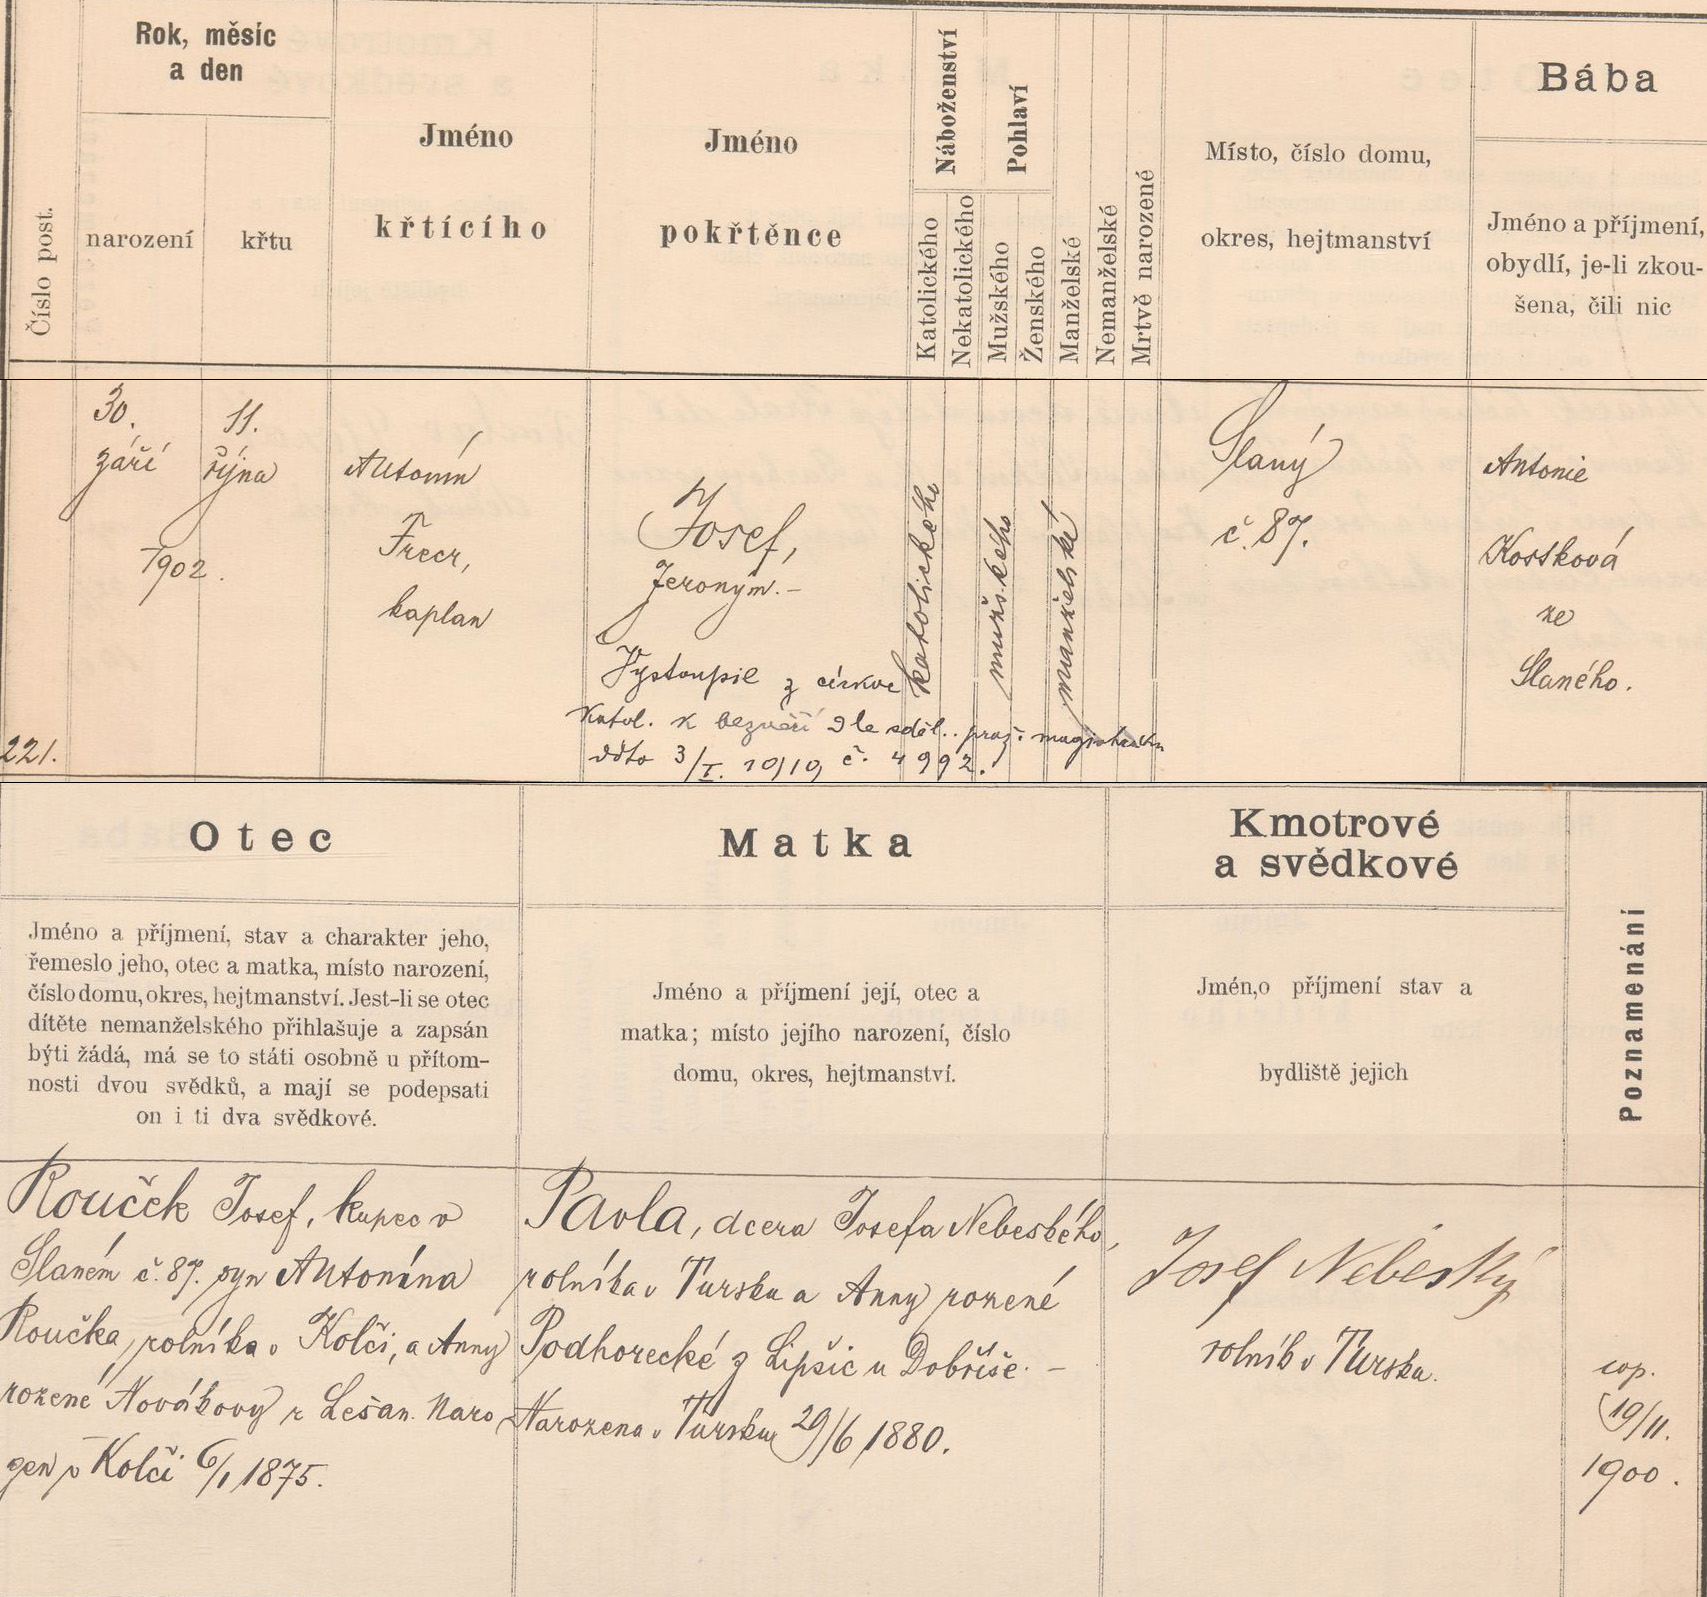 Rok, měsíc
a den
Číslo post.
narození
křtu
Jméno
křtícího
Jméno
pokřtěnce
Náboženství
Katolického
Nekatolického
Pohlaví
Mužského
Ženského
Manželské
Nemanželské
Mrtvě narozené
Místo, číslo domu,
okres, hejtmanství
Bába
Jméno a příjmení,
obydlí, je-li zkou-
šena, čili nic
221.
30.
září
11.
října
1902.
Antonín
kaplan
Josef,
Jeronym.-
Vystoupil z církve
katol. k bezvěří dle sděl. praž. magistrátu
ddto 3/I. 1919, č. 4992.
katolického
mužského
manželské
Slaný
č. 87.
Antonie
Kossková
ze
Slaného.
Otec
Jméno a příjmení, stav a charakter jeho,
řemeslo jeho, otec a matka, místo narození,
číslo domu, okres, hejtmanství. Jest-li se otec
dítěte nemanželského přihlašuje a zapsán
býti žádá, má se to státi osobně u přítom-
nosti dvou svědků, a mají se podepsati
on i ti dva svědkové.
Rouček Josef, kupec v
Slaném č. 87. syn Antonína
Roučka, rolníka v Kolči, a Anny
rozené Novákovy z Lešan. Naro
zen v Kolči 6/1 1875.
Matka
Jméno a příjmení její, otec a
matka; místo jejího narození, číslo
domu, okres, hejtmanství.
Pavla, dcera Josefa Nebeského,
rolníka v Tursku a Anny rozené
Podhorecké z Lipšic u Dobříše. -
Narozena v Tursku 29/6 1880.
Kmotrové
a svědkové
Jmén,o příjmení stav a
bydliště jejich
Josef Nebeský
rolník v Tursku.
Poznamenání
cop.
19/11.
1900.